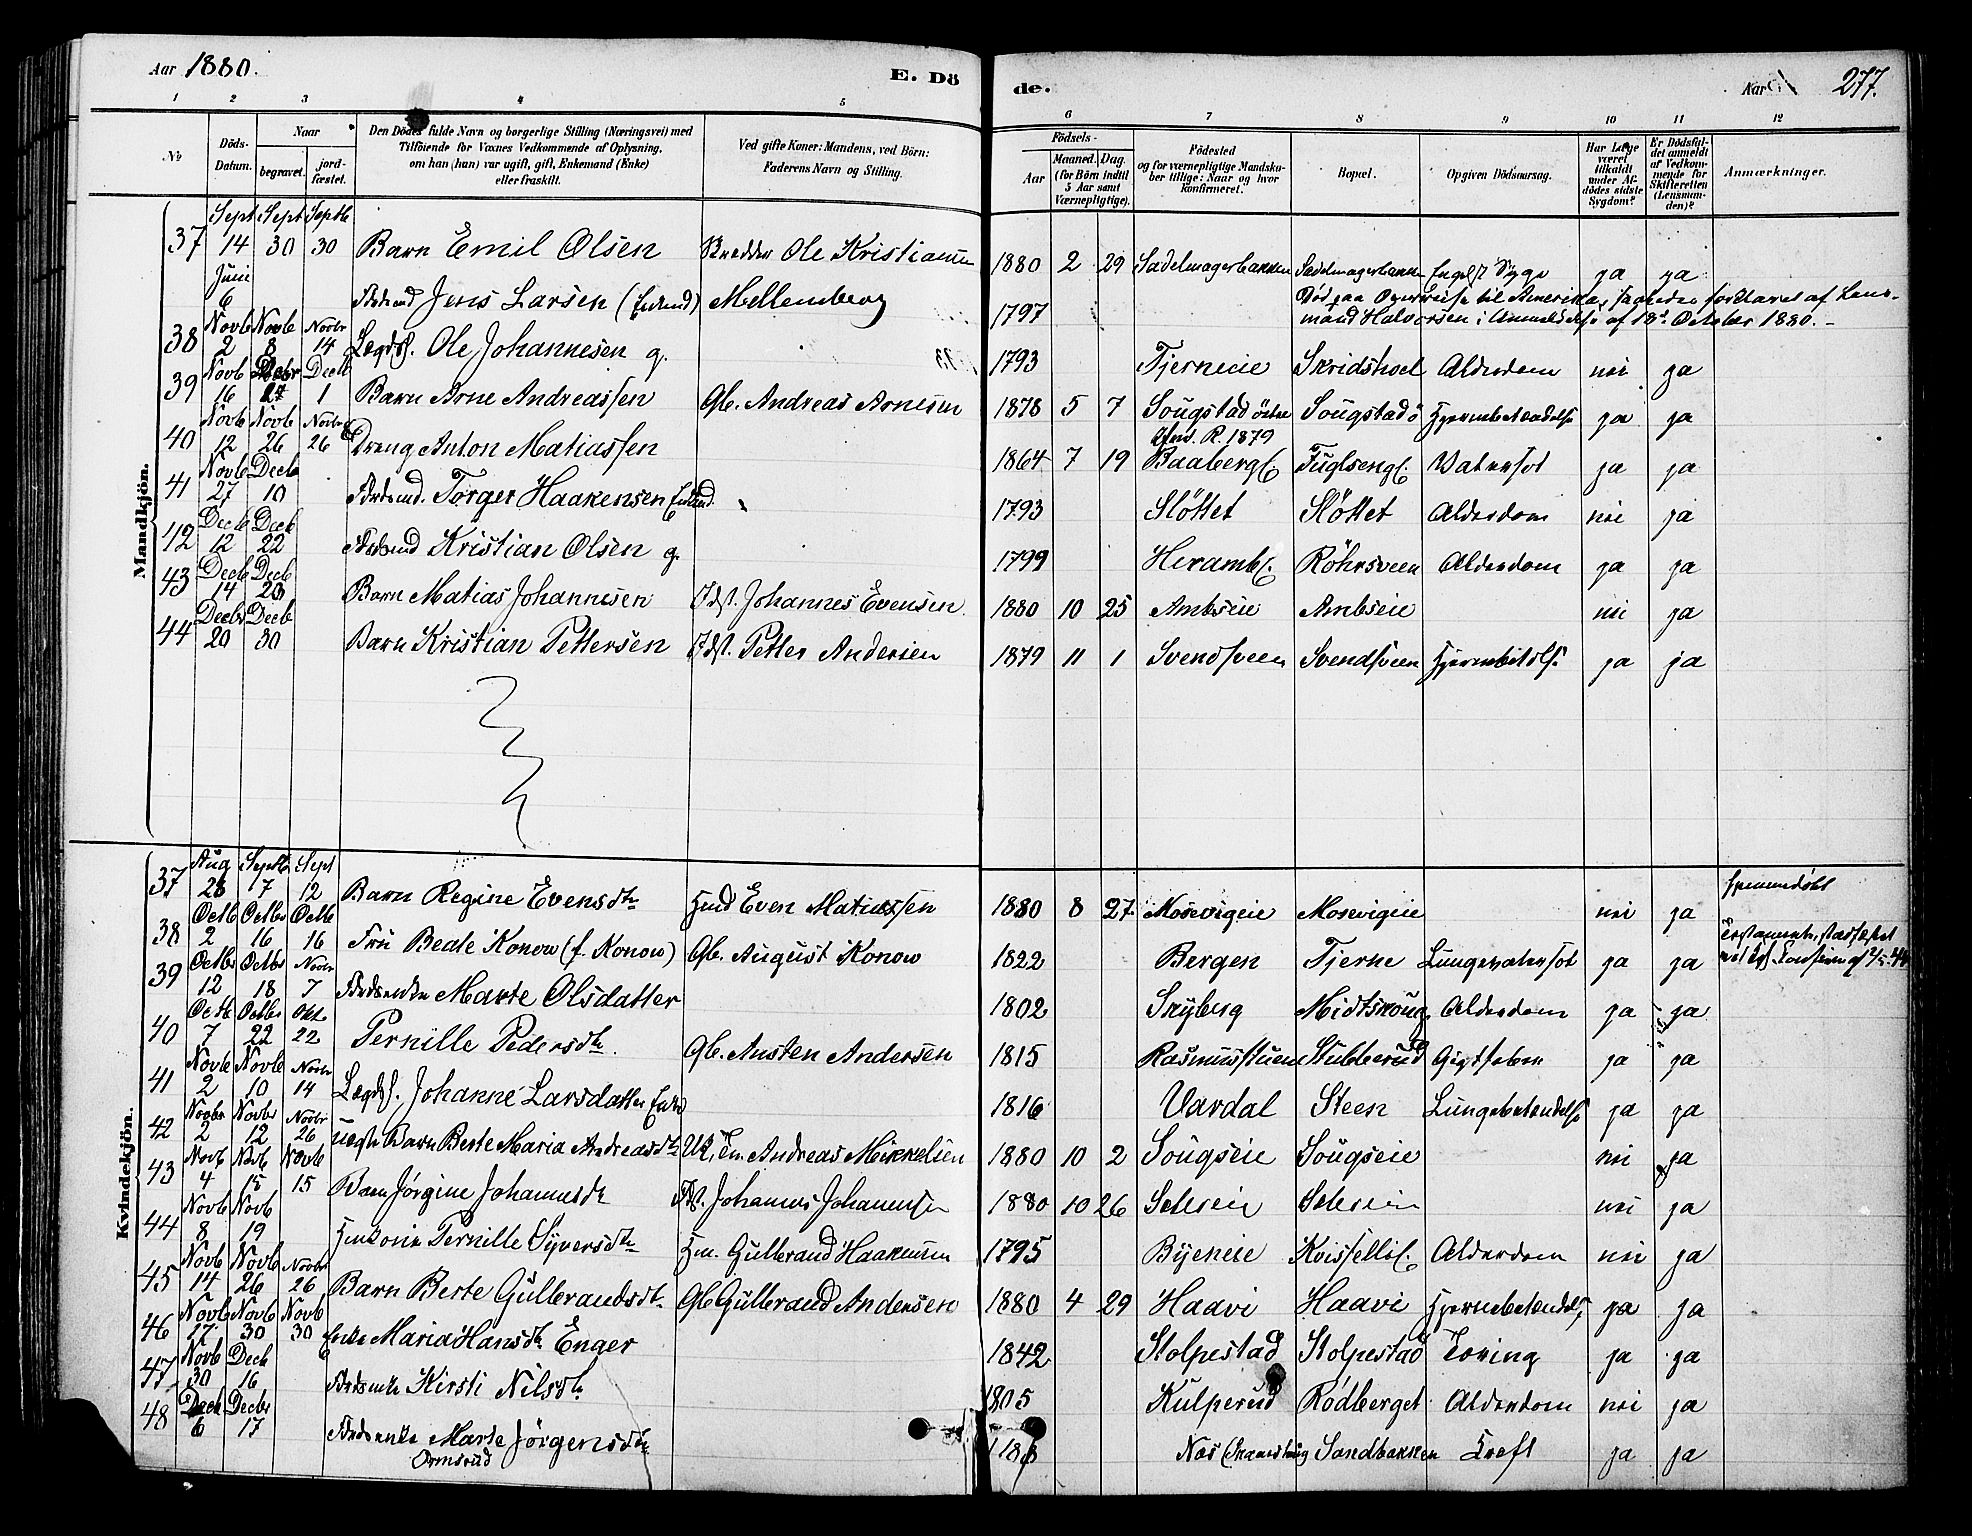 Aar 1880. E. Dö de. Aar 277.
1 2 3 4 5 6 7 8 9 10 11 12
No Döds-Datum. Naar begravet. jordfæstet. Den Dödes fulde Navn og borgerlige Stilling (Næringsvei) med Tilföiende for Voxnes Vedkommende af Oplysning, om han (hun) var ugift, gift, Enkemand (Enke) eller fraskilt. Ved gifte Koner: Mandens, ved Börn: Faderens Navn og Stilling. Födsels- Aar Maaned. Dag. (for Börn indtil 5 Aar samt Værnepligtige). Födested og for værnepligtige Mandskaber tillige: Naar og hvor konfirmeret. Bopæl. Opgiven Dödsaarsag. Har Læge været tilkaldt under Afdödes sidste Sygdom? Er Dödsfaldet anmeldt af Vedkommende for Skifteretten (Lensmanden)? Anmærkninger.
Mandkjön.
37 Sept 14 Sept 30 Septb 30 Barn Emil Olsen Skrædder Ole Kristiansen 1880 2 29 Sadelmagerbakken Sadelmagerbakken Engelsk Syge ja ja
Juni 6 Jens Larsen (Enkemd) Mellemberg 1797 Död paa Overreise til Amerika, forklaret af Lens-
mand Halvorsen i Anmeldelse af 18de October 1880. -
38 Novb 2 Novb 8 Novbr 14 Lægdsl. Ole Johannesen g. 1793 Tjerneie Skridshoel Alderdom nei ja
39 Novb 16 24 Decb 1 Barn Arne Andreassen Gb. Andreas Arnesen 1878 5 7 Sougstad östre Sougstad ö Hjernebetændelse ja ja
40 Novb 12 Novb 26 Novbr 26 Dreng Anton Matiassen 1864 7 19 R. 1879 Baaberg Fuglseng Vatersot ja ja
41 Novb 27 Decb 10 Torger Haakensen Enkmd. 1793 Slöttet Slöttet Alderdom nei ja
42 Decb 12 Decb 22 Kristian Olsen g. 1799 Heramb Röhrsveen Alderdom ja ja
43 Decb 14 Decb 23 Barn Matias Johannesen Idst. Johannes Evensen 1880 10 25 Ambseie Ambseie nei ja
44 Decbr 20 Decb 30 Barn Kristian Pettersen Idst. Petter Andersen 1879 11 1 Svendsveen Svendsveen ja ja
Kvindekjön.
37 Aug 28 Septb 7 Sept 12 Barn Regine Evensdtr Hmd Even Matiassen 1880 8 27 Mosevigeie Mosevigeie nei ja Hjemmedöbt
38 Octb 2 Octbr 16 Octb 16 Fru Beate Konow (f. Konow) Gb. August Konow 1822 Bergen Tjerne Lungevatersot ja ja
39 Octbr 12 Octbr 18 Novbr 7 Marte Olsdatter 1802 Skyberg Midtskoug Alderdom ja ja
40 Octb 7 Octbr 22 Okt 22 Pernille Pedersdtr. Gb. Austen Andersen 1815 Rasmusstuen Stubberud Gigtfeber ja ja
41 Novb 2 Novb 10 Novbr 14 Lægdsl. Johanne Larsdatter Enke 1816 Vardal Steen Lungebetændelse ja ja
42 Novbr 2 Novbr 12 Novbr 26 uægte Barn Berte Maria Andreasdtr Uk, Em. Andreas Mikkelsen 1880 10 2 Sougseie Sougseie nei ja
43 Novb 4 Novb 15 Novb 15 Barn Jörgine Johannesdtr Idst. Johannes Johannesen 1880 10 26 Soleseie Soleseie nei ja
44 Novb 8 Novb 19 Pernille Syversdtr Hm. Gulbrand Haakensen 1795 Byeneie Alderdom nei ja
45 Novb 14 Novb 26 Novbr 26 Barn Berte Gulbrandsdtr. Gb Gulbrand Andersen 1880 4 29 Haavi Haavi Hjernebetændelse ja ja
46 Novb 17 Novb 30 Novb 30 Enke Maria Hansdtr Enger 1842 Stolpestad Stolpestad Tæring ja ja
47 Novb 30 Decb 16 Kirsti Nilsdtr 1805 Kulperud Rödberget Alderdom nei ja
48 Decb 6 Decbr 17 Marte Jörgensdtr Næs Sandbakken Kræft ja ja
Ormsrud